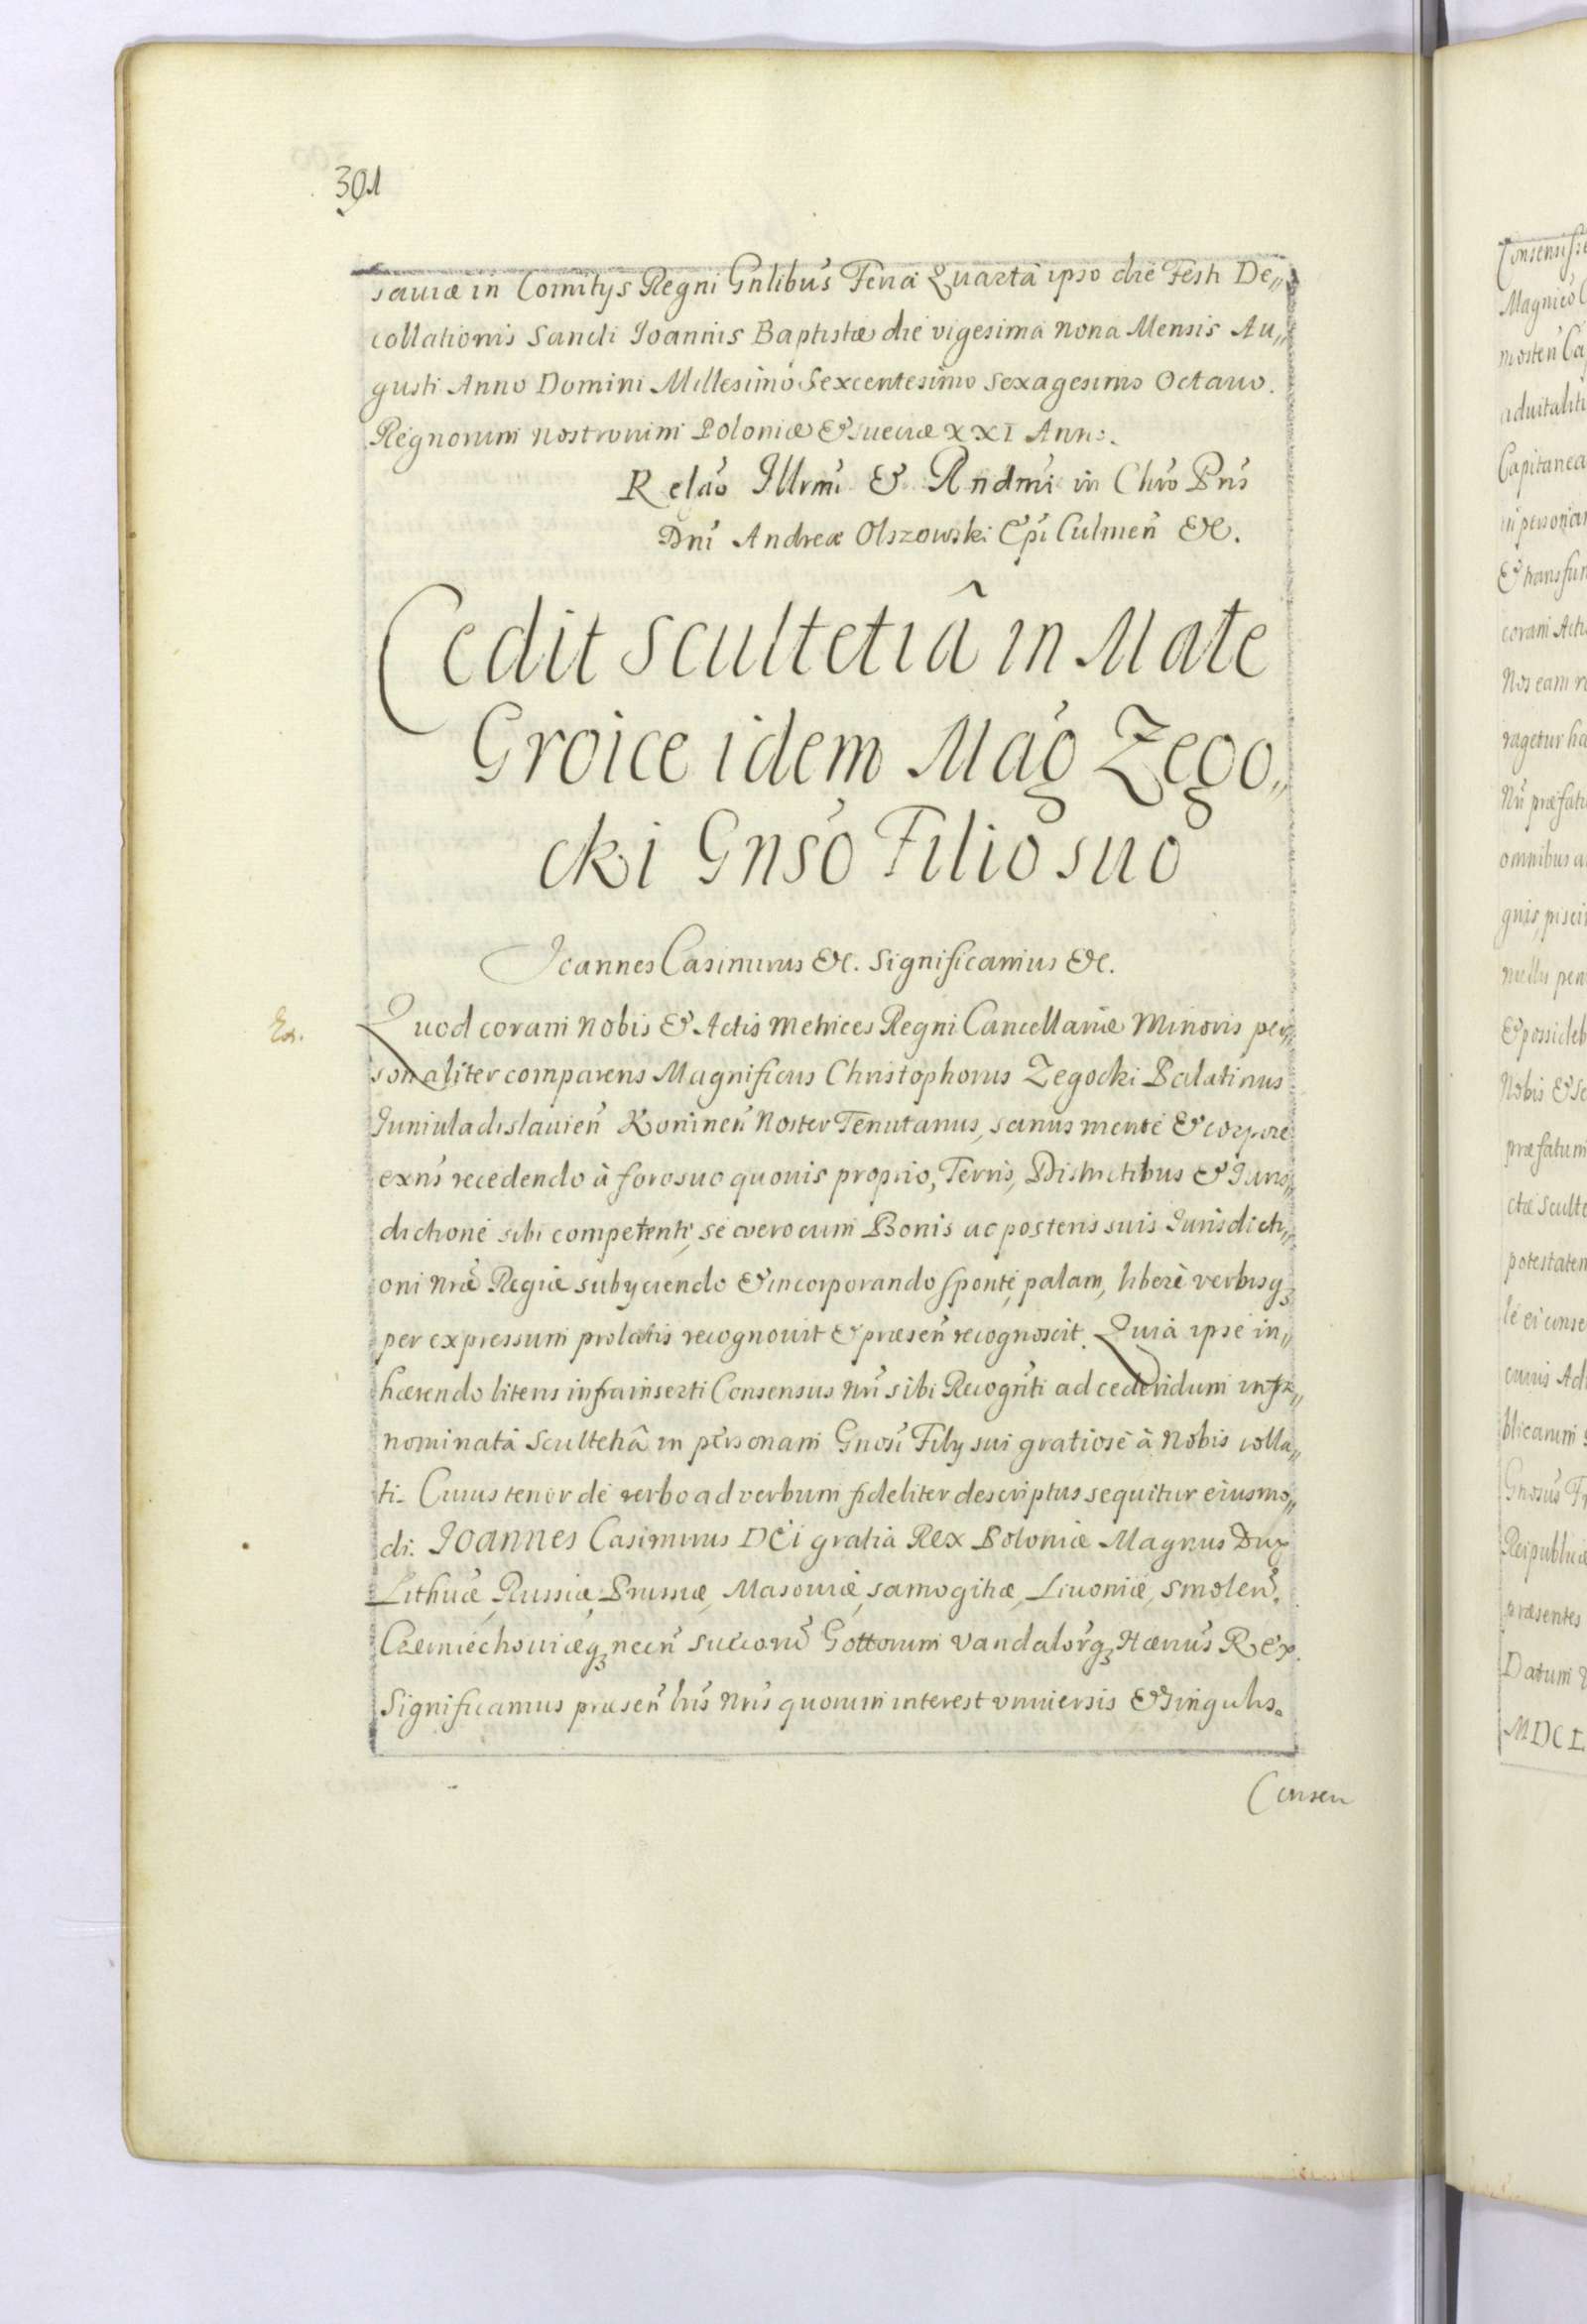 301
sauiæ in Comitys Regni Gnlibus Feria Quarta ipso die Festi De„
collationis Sancti Joannis Baptistæ die vigesima nona Mensis Au„
gusti Anno Domini Millesimo Sexcentesimo Sexagesimo Octauo.
Regnorum nostrorum Poloniæ & Sueciæ XXI Anno.
Relao Illrmi & Rndmi in Chro Pris
Dni Andreæ Olszowski Epi Culmen &c.
Cedit Scultetiâ in Małe
Groice idem Mag Zego„
cki Gnso Filio suo
Joannes Casimirus &c. Significamus &c.
Quod coram nobis & Actis Metrices Regni Cancellariæ Minoris per„
sonaliter comparens Magnificus Christophorus Zegocki Palatinus
Juniuladislauien Koninen Noster Tenutarius, sanus mente & corpore
exns recedendo à foro suo quouis proprio, Terris, Districtibus & Juris„
dictione sibi competenti, se vero cum Bonis ac posteris suis Jurisdicti„
oni nræ Regiæ subyciendo & incorporando sponte, palam, liberè verbisq
per expressum prolatis recognouit & præsen recognoscit. Quia ipse in„
hærendo literis infrainserti Consensus nri sibi Recognti ad cedendum infra„
nominatâ Scultetiâ in personam Gnosi Fily sui gratiosè à Nobis colla„
ti. Cuius tenor de verbo ad verbum fideliter descriptus sequitur eiusmo„
di. Joannes Casimirus DEi gratia Rex Poloniæ Magnus Dux
Lithuæ, Russiæ Prussiæ, Masouiæ, Samogitiæ, Liuoniæ, Smolen,
Czerniechouiæq necn Suecorū Gottorum Vandalorq Hærus Rex.
Significamus præsen lris nris quorum interest vniuersis & singulis.
Consen